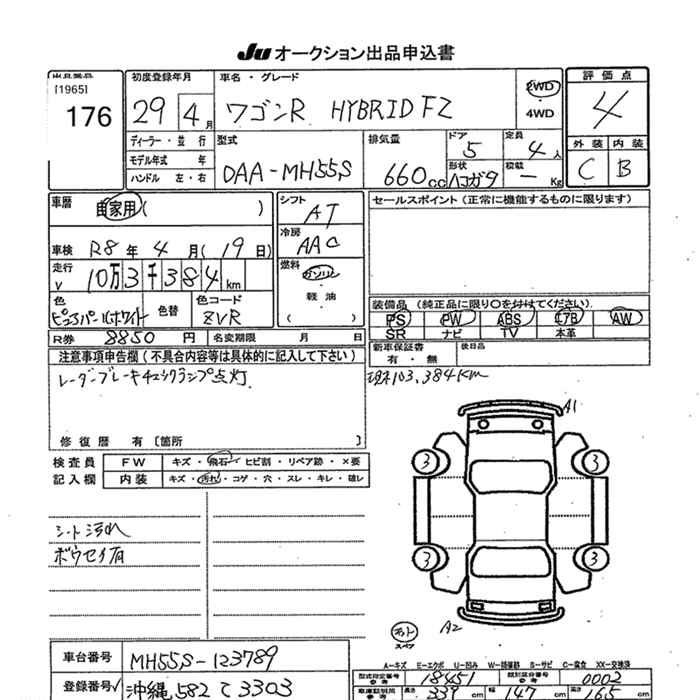 Ju オークション出品申込書
出品番号
[1965]
176
初度登録年月
29 4月
車名・グレード
ワゴンR HYBRID FZ
2WD
4WD
評価点
4
ディーラー・並行
モデル年式 年
ハンドル 左・右
型式
DAA-MH55S
排気量
660cc
ドア
5
定員
4人
形状
ハコガタ
積載
- Kg
外装 内装
C B
車歴
自家用( )
シフト
AT
セールスポイント(正常に機能するものに限ります)
車検 R8年4月(19日)
冷房
AAC
走行
10万3千384km
燃料
ガソリン
軽油
( )
色
ピュアパールホワイト
色替
色コード
ZVR
装備品(純正品に限り○を付けてください)
PS PW ABS エアB AW
SR ナビ TV 本革
R券 8850円 名変期限 月 日
新車保証書 後日品
有・無
注意事項申告欄(不具合内容等は具体的に記入して下さい)
レーダーブレーキチェックランプ点灯
現103,384km
修復歴 有[箇所 ]
検査員
記入欄
FW キズ・飛石・ヒビ割・リペア跡・×要
内装 キズ・汚れ・コゲ・穴・スレ・キレ・破レ
シート汚れ
ボウセイ有
A1
3 3
3 3
A2
スペア
A-キズ E-エクボ U-凹み W-補修跡 S-サビ C-腐食 XX-交換済
車台番号 MH55S-123789
登録番号 沖縄582て3303
型式指定番号 18451 類別区分番号 0002
長さ 339cm 幅 147cm 高さ 165cm